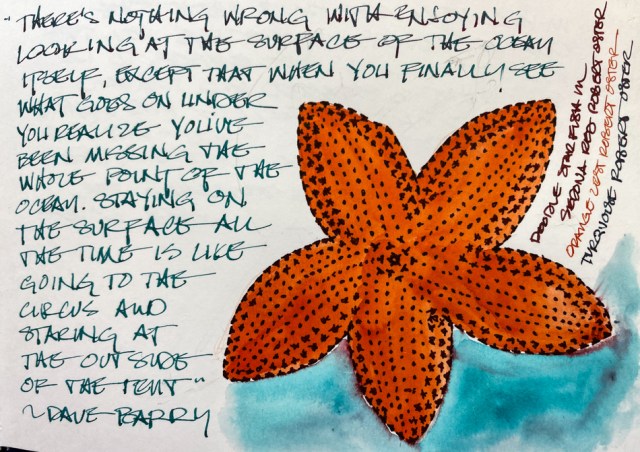 "THERE'S NOTHING WRONG WITH ENJOYING
LOOKING AT THE SURFACE OF THE OCEAN
ITSELF, EXCEPT THAT WHEN YOU FINALLY SEE
WHAT GOES ON UNDER
YOU REALIZE YOU'VE
BEEN MISSING THE
WHOLE POINT OF THE
OCEAN. STAYING ON
THE SURFACE ALL
THE TIME IS LIKE
GOING TO THE
CIRCUS AND
STARING AT
THE OUTSIDE
OF THE TENT"
~DAVE BARRY
DOODLE STARFISH IN
SEDONA RED ROBERT OSTER
ORANGE ZEST ROBERT OSTER
TURQUOISE ROBERT OSTER